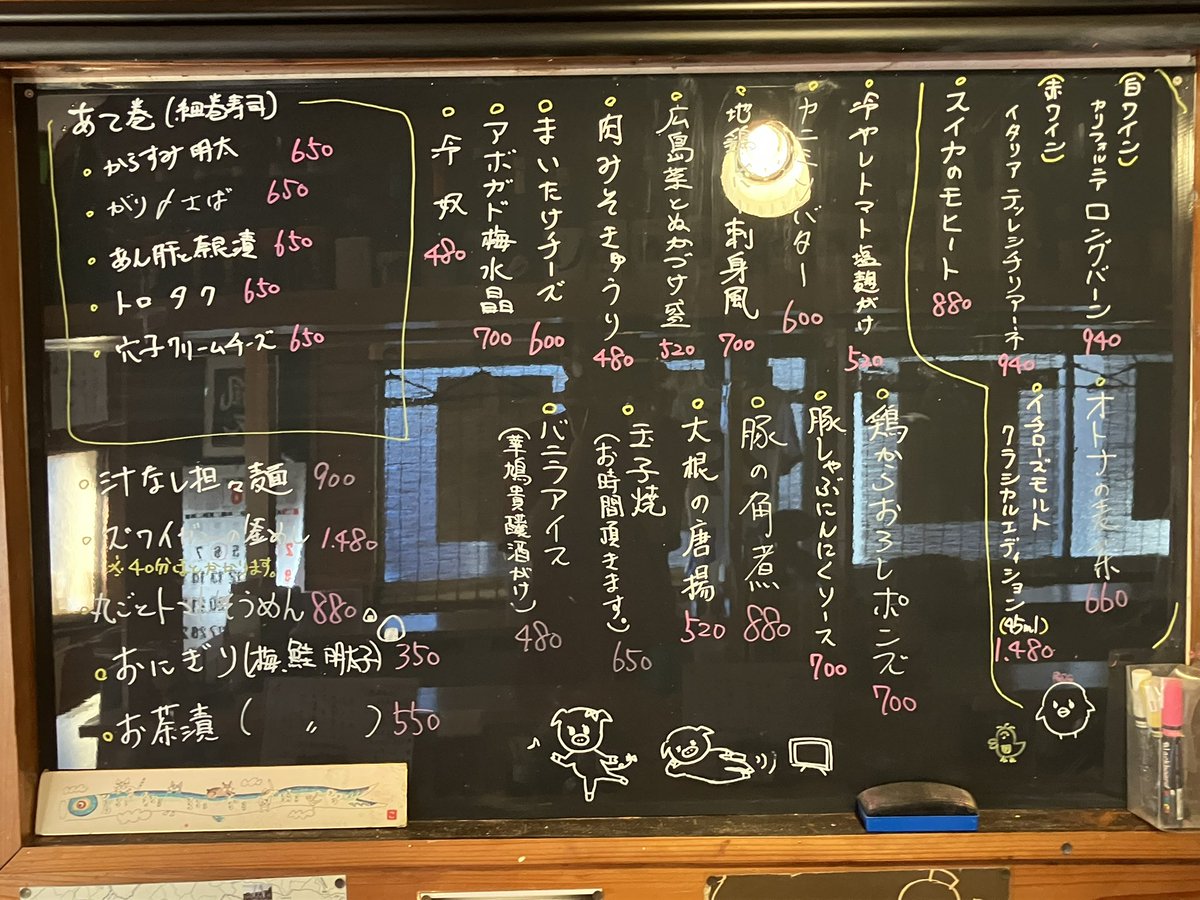 (白ワイン)
カリフォルニア ロングバーン 940
(赤ワイン)
イタリア テッレシチリアーネ 940
スイカのモヒート 880
オトナの 660
イチローズモルト
クラシカルエディション (45ml) 1.480
冷ヤレトマト塩麹がけ 520
バター 600
地鶏 刺身風 700
広島菜とぬかづけ 520
肉みそきゅうり 480
まいたけチーズ 600
アボガド梅水晶 700
冷奴 480
鶏からおろしポンズ 700
豚しゃぶにんにくソース 700
豚の角煮 880
大根の唐揚 520
玉子焼
(お時間頂きます。) 650
バニラアイス
(華鳩貴醸酒がけ) 480
あて巻 (細巻寿司)
からすみ明太 650
がり〆さば 650
あん肝と奈良漬 650
トロタク 650
穴子クリームチーズ 650
汁なし担々麺 900
ズワイガニの釜めし 1.480
※40分ほどかかります。
丸ごとトマトそうめん 880
おにぎり(梅 鮭 明太子) 350
お茶漬 ( 〃 ) 550